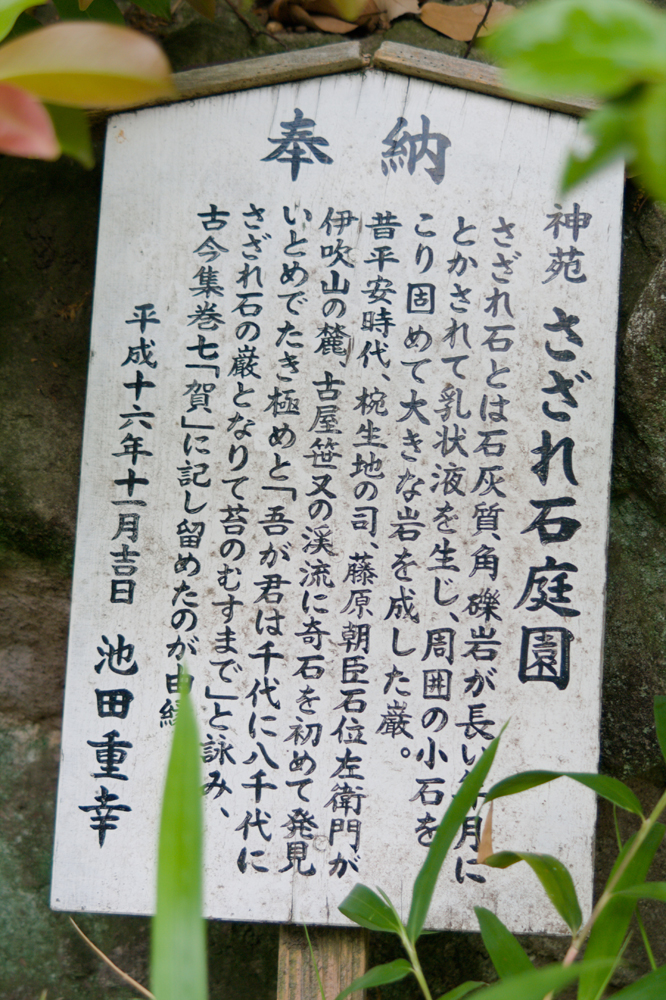 奉納
神苑 さざれ石庭園
さざれ石とは石灰質、角礫岩が長い年月に
とかされて乳状液を生じ、周囲の小石を
こり固めて大きな岩を成した巌。
昔平安時代、椀生地の司、藤原朝臣石位左衛門が
伊吹山の麓、古屋笹又の渓流に奇石を初めて発見
いとめでたき極めと「吾が君は千代に八千代に
さざれ石の巌となりて苔のむすまで」と詠み、
古今集巻七「賀」に記し留めたのが由縁
平成十六年十一月吉日 池田重幸